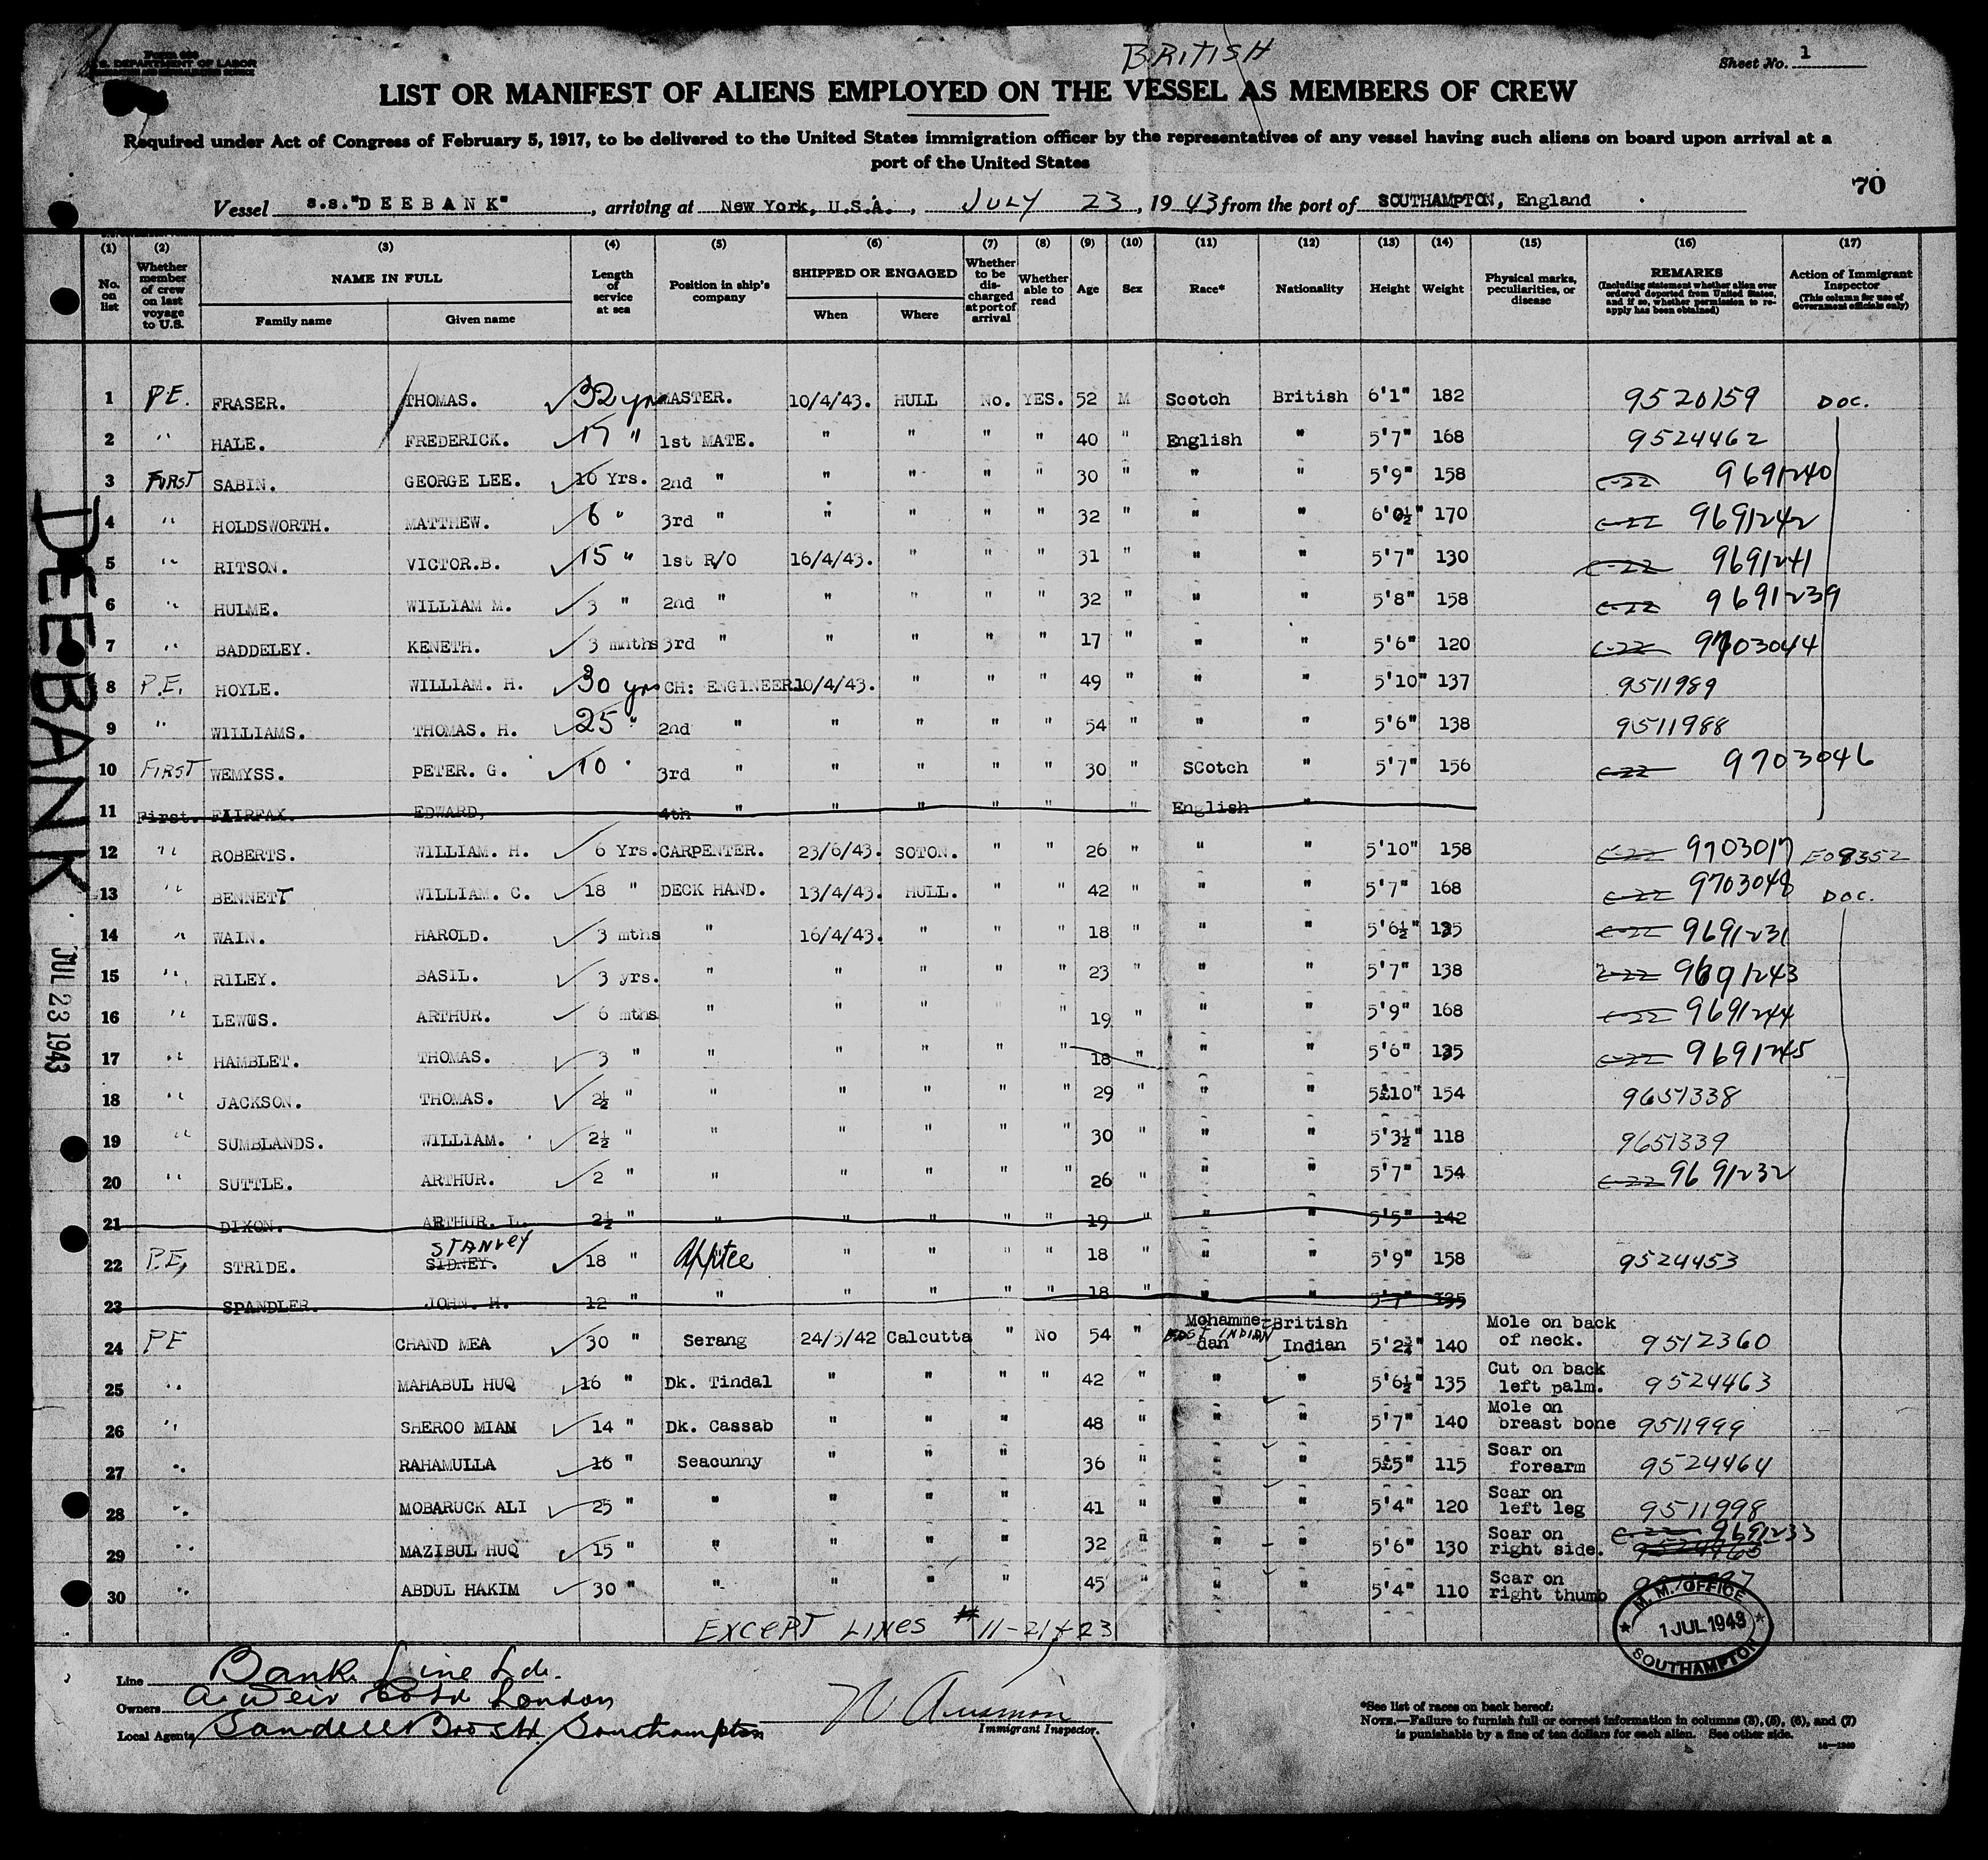 Form 680
U.S. DEPARTMENT OF LABOR
BRITISH
Sheet No. 1
LIST OR MANIFEST OF ALIENS EMPLOYED ON THE VESSEL AS MEMBERS OF CREW
Required under Act of Congress of February 5, 1917, to be delivered to the United States immigration officer by the representatives of any vessel having such aliens on board upon arrival at a
port of the United States
70
Vessel s.s."DEEBANK", arriving at New York, U.S.A., JULY 23, 1943 from the port of SOUTHAMPTON, England
(1) (2) (3) (4) (5) (6) (7) (8) (9) (10) (11) (12) (13) (14) (15) (16) (17)
No. on list
Whether member of crew on last voyage to U.S.
NAME IN FULL
Family name
Given name
Length of service at sea
Position in ship's company
SHIPPED OR ENGAGED
When
Where
Whether to be discharged at port of arrival
Whether able to read
Age
Sex
Race*
Nationality
Height
Weight
Physical marks, peculiarities, or disease
REMARKS
(Including statement whether alien ever ordered deported from United States, and if so, whether permission to reapply has been obtained)
Action of Immigrant Inspector
(This column for use of Government officials only)
1 P.E. FRASER. THOMAS. 32 yrs MASTER. 10/4/43. HULL No. YES. 52 M Scotch British 6'1" 182 9520159 DOC.
2 " HALE. FREDERICK. 17 " 1st MATE. " " " " 40 " English " 5'7" 168 9524462
3 FIRST SABIN. GEORGE LEE. 10 Yrs. 2nd " " " " " 30 " " " 5'9" 158 C-22 9691240
4 " HOLDSWORTH. MATTHEW. 6 " 3rd " " " " " 32 " " " 6'0½" 170 C-22 9691242
5 " RITSON. VICTOR.B. 15 " 1st R/O 16/4/43. " " " 31 " " " 5'7" 130 C-22 9691241
6 " HULME. WILLIAM M. 3 " 2nd " " " " " 32 " " " 5'8" 158 C-22 9691239
7 " BADDELEY. KENETH. 3 mnths 3rd " " " " " 17 " " " 5'6" 120 C-22 9703044
8 P.E. HOYLE. WILLIAM. H. 30 yrs CH: ENGINEER. 10/4/43. " " " 49 " " " 5'10" 137 9511989
9 " WILLIAMS. THOMAS. H. 25 " 2nd " " " " " 54 " " " 5'6" 138 9511988
10 FIRST WEMYSS. PETER. G. 10 " 3rd " " " " " 30 " SCotch " 5'7" 156 C-22 9703046
11 First. FAIRFAX. EDWARD, 4th " " " " " " English "
12 " ROBERTS. WILLIAM. H. 6 Yrs. CARPENTER. 23/6/43. SOTON. " " 26 " " " 5'10" 158 C-22 9703017 E08352
13 " BENNETT WILLIAM. C. 18 " DECK HAND. 13/4/43. HULL. " " 42 " " " 5'7" 168 C-22 9703048 DOC.
14 " WAIN. HAROLD. 3 mths " 16/4/43. " " " 18 " " " 5'6½" 125 C-22 9691231
15 " RILEY. BASIL. 3 yrs. " " " " " 23 " " " 5'7" 138 C-22 9691243
16 " LEWIS. ARTHUR. 6 mths " " " " " 19 " " " 5'9" 168 C-22 9691244
17 " HAMBLET. THOMAS. 3 " " " " " " 18 " " " 5'6" 125 C-22 9691245
18 " JACKSON. THOMAS. 2½ " " " " " " 29 " " " 5£10" 154 9651338
19 " SUMBLANDS. WILLIAM. 2½ " " " " " " 30 " " " 5'3½" 118 9651339
20 " SUTTLE. ARTHUR. 2 " " " " " " 26 " " " 5'7" 154 C-22 9691232
21 DIXON. ARTHUR. L. 2½ " " " " " " 19 " " " 5'5" 142
22 P.E, STRIDE. STANLEY SIDNEY. 18 " Apptce " " " " 18 " " " 5'9" 158 9524453
23 SPANDLER. JOHN. H. 12 " " " " " " 18 " " " 5'7" 135
24 PE CHAND MEA 30 " Serang 24/5/42 Calcutta " No 54 " Mohammedan EAST INDIAN British Indian 5'2¾" 140 Mole on back of neck. 9512360
25 " MAHABUL HUQ 16 " Dk. Tindal " " " " 42 " " " 5'6½" 135 Cut on back left palm. 9524463
26 " SHEROO MIAN 14 " Dk. Cassab " " " 48 " " " 5'7" 140 Mole on breast bone 9511999
27 " RAHAMULLA 16 " Seacunny " " " 36 " " " 5£5" 115 Scar on forearm 9524464
28 " MOBARUCK ALI 25 " " " " " 41 " " " 5'4" 120 Scar on left leg 9511998
29 " MAZIBUL HUQ 15 " " " " " 32 " " " 5'6" 130 Scar on right side. C-22 9691233 9524465
30 " ABDUL HAKIM 30 " " " " " 45 " " " 5'4" 110 Scar on right thumb
EXCEPT LINES # 11-21+23
DEEBANK
JUL 23 1943
M. M. OFFICE
1 JUL 1943
SOUTHAMPTON
Line Bank Line Ltd.
Owners A. Weir & Co Ltd London
Local Agents Sandell Bros Ltd. Southampton
Immigrant Inspector.
*See list of races on back hereof.
NOTE.—Failure to furnish full or correct information in columns (3), (5), (6), and (7)
is punishable by a fine of ten dollars for each alien. See other side.